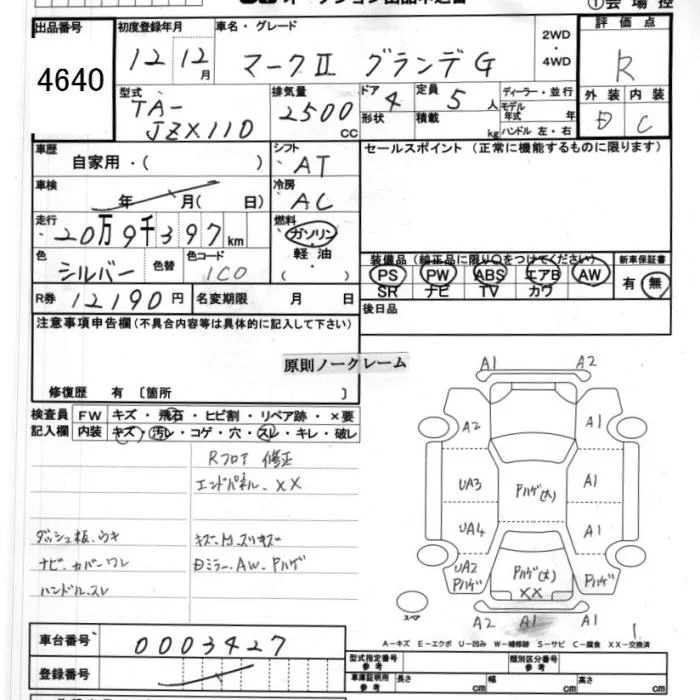 ①会場控
出品番号 4640
初度登録年月 12 12月
車名・グレード マークⅡ グランデG
2WD・4WD
評価点 R
外装 内装
D C
型式 TA-JZX110
排気量 2500cc
ドア 4
形状
定員 5人
積載 kg
ディーラー・並行
モデル年式 年
ハンドル 左・右
車歴 自家用・( )
シフト AT
セールスポイント (正常に機能するものに限ります)
車検 年 月( 日)
冷房 AC
走行 20万9千397km
燃料 ガソリン・軽油・( )
色 シルバー 色替 色コード 1C0
装備品(純正品に限り○をつけてください)
PS PW ABS エアB AW
SR ナビ TV カワ
新車保証書 有 無
R券 12190円
名変期限 月 日
後日品
注意事項申告欄(不具合内容等は具体的に記入して下さい)
原則ノークレーム
修復歴 有〔箇所 〕
検査員記入欄
FW キズ・飛石・ヒビ割・リペア跡・×要
内装 キズ・汚レ・コゲ・穴・スレ・キレ・破レ
Rフロア 修正
エンドパネル.XX
ダッシュ板.ウキ
ナビ.カバーワレ
ハンドル.スレ
Dミラー.AW.Pハゲ
A1 A2
A2 A1
UA3 Pハゲ(大) A1
UA4 A1
UA2 Pハゲ Pハゲ(大) XX Pハゲ
スペア
A2 A1 A1
A-キズ E-エクボ U-凹み W-補修跡 S-サビ C-腐食 XX-交換済
車台番号 0003427
登録番号
型式指定番号 類別区分番号
車庫証明用参考 長さ cm 幅 cm 高さ cm